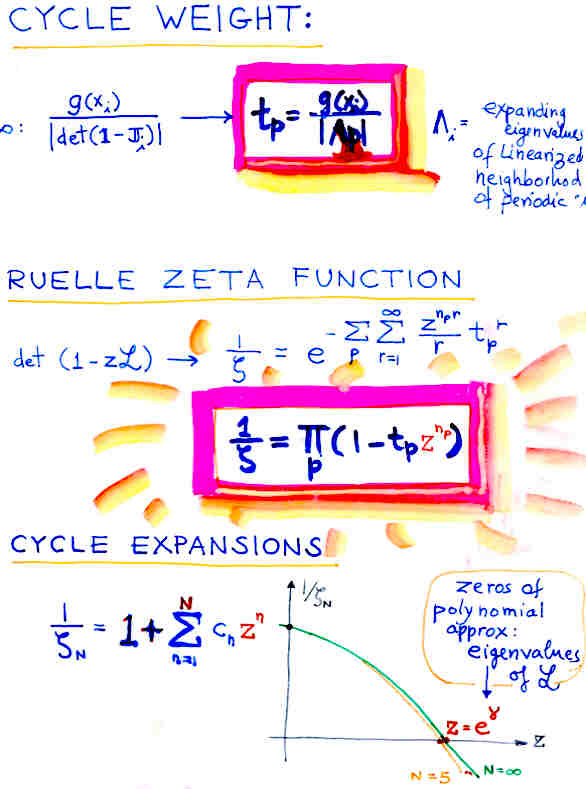 CYCLE WEIGHT:
∞: g(xᵢ) / |det(1 - 𝕁ᵢ)| → tₚ = g(xᵢ) / |Λₚ|
Λᵢ = expanding
eigenvalues
of Linearized
neighborhod
of periodic
RUELLE ZETA FUNCTION
det (1 - zℒ) → 1/ζ = e^(-Σₚ Σ_{r=1}^∞ (z^{nₚr}/r) tₚʳ)
1/ζ = Πₚ (1 - tₚ z^{nₚ})
CYCLE EXPANSIONS
1/ζ_N = 1 + Σ_{n=1}^N cₙ zⁿ
1/ζ_N
zeros of
polynomial
approx:
eigenvalues
of ℒ
z = e^γ
z
N=5
N=∞